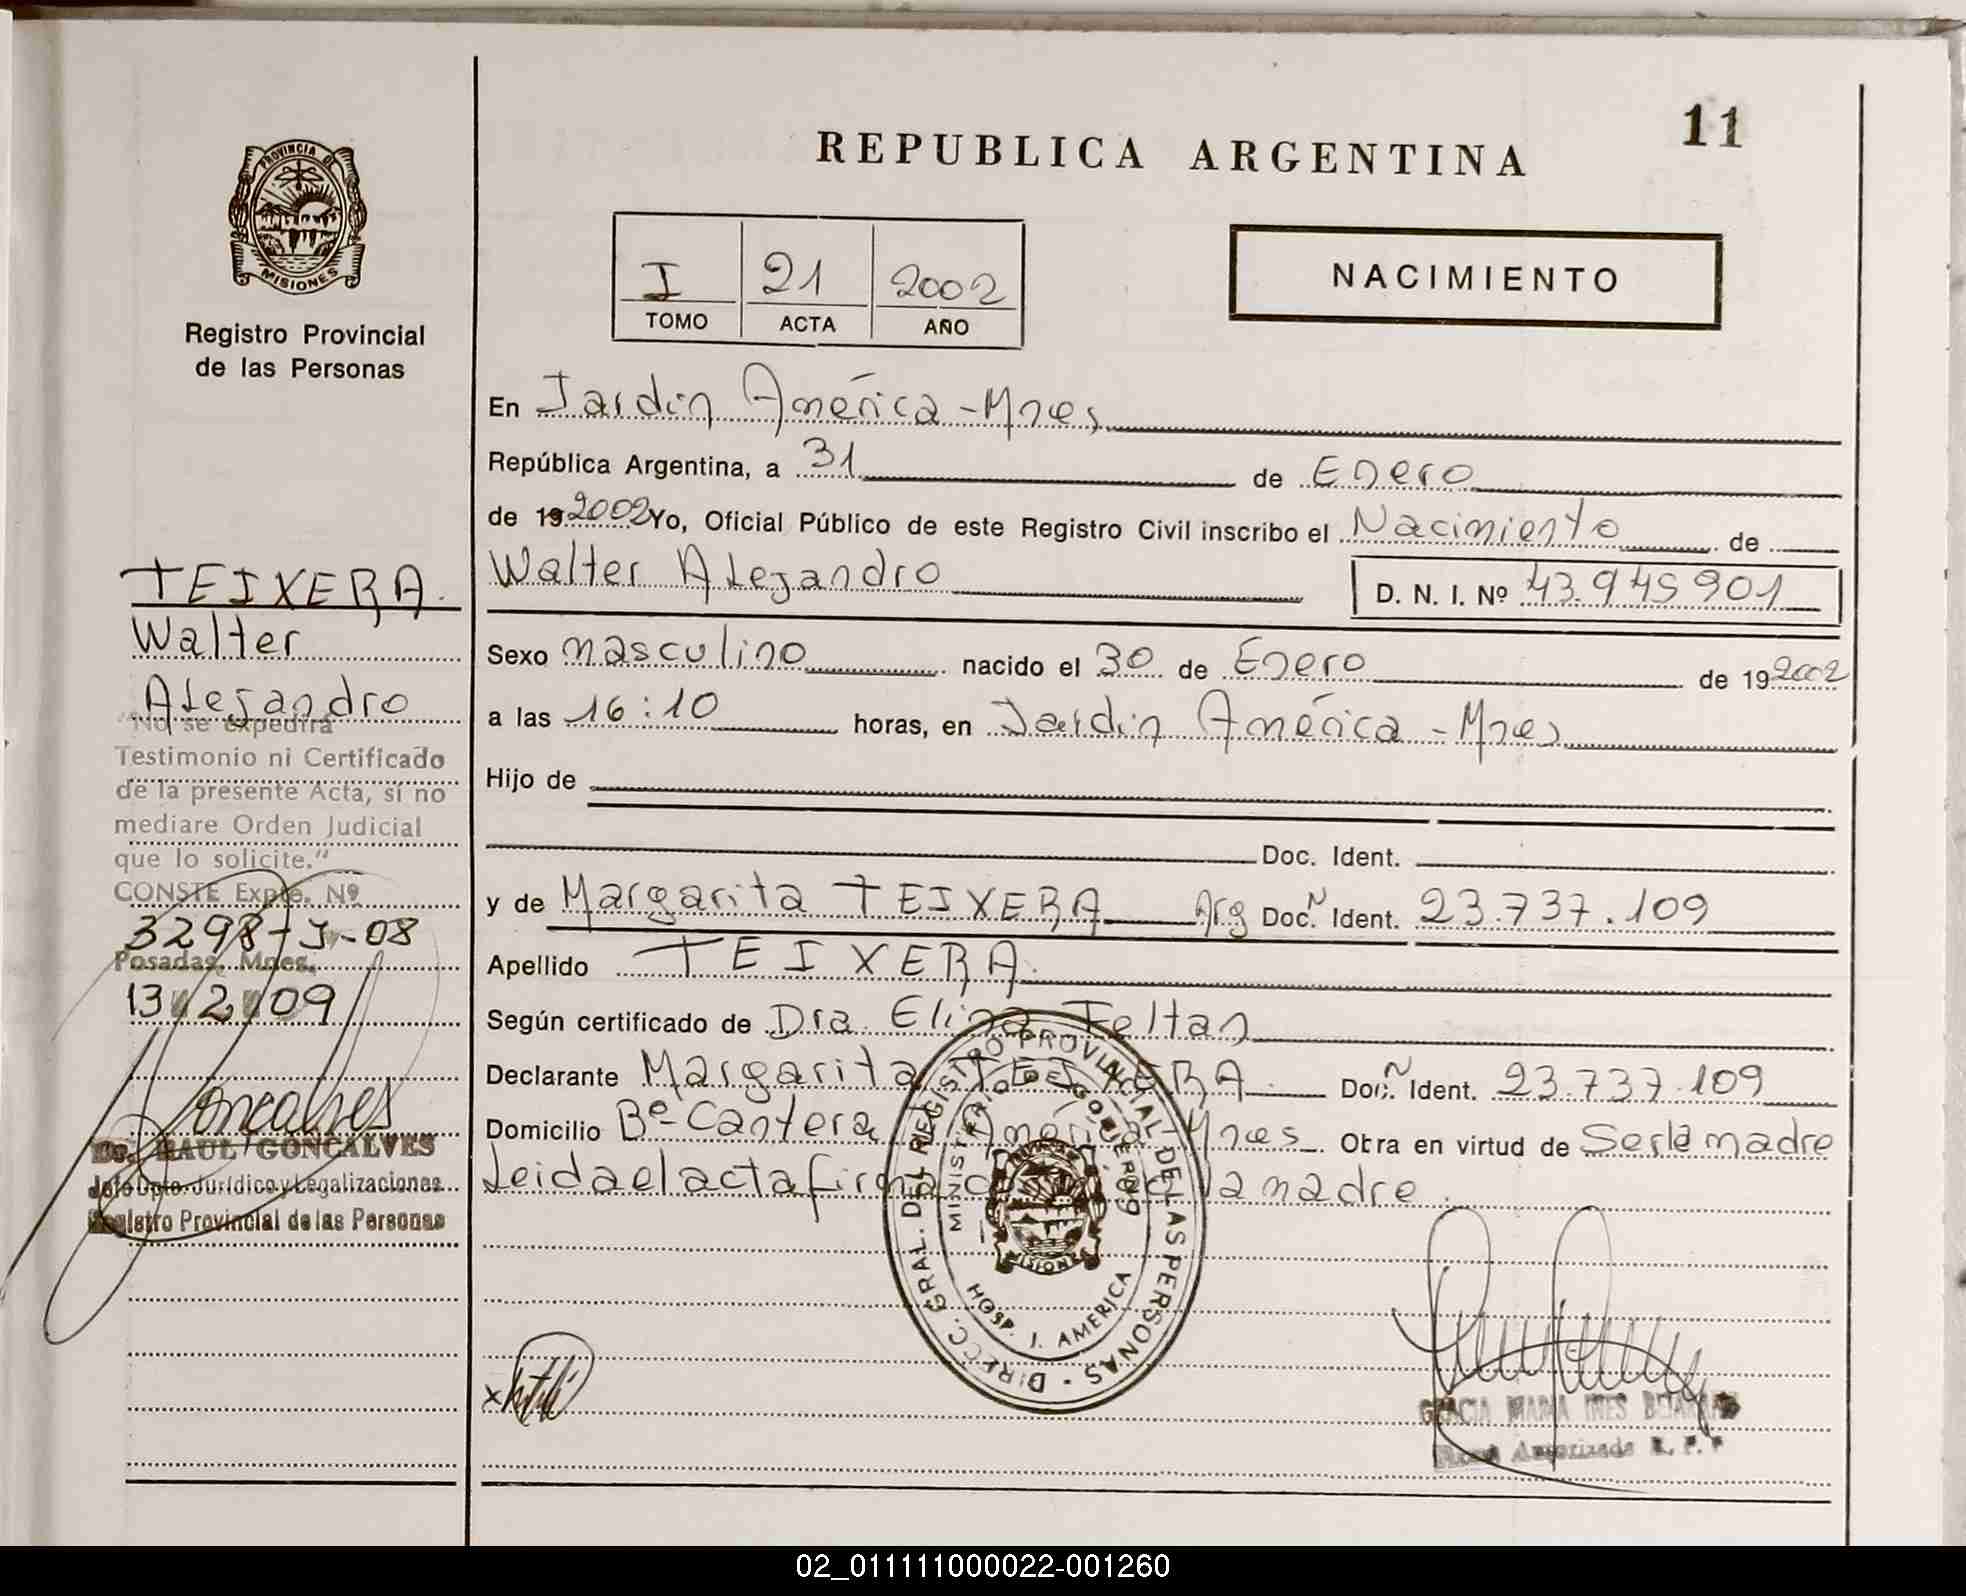 11
REPUBLICA ARGENTINA
PROVINCIA DE
MISIONES
Registro Provincial
de las Personas
I 21 2002
TOMO ACTA AÑO
NACIMIENTO
En Jardin América - Mnes
República Argentina, a 31 de Enero
de 19 2002 Yo, Oficial Público de este Registro Civil inscribo el Nacimiento de
Walter Alejandro D. N. I. Nº 43.945901
Sexo masculino nacido el 30 de Enero de 19 2002
a las 16:10 horas, en Jardin América - Mnes
Hijo de
Doc. Ident.
y de Margarita TEIXERA Arg Doc. N Ident. 23.737.109
Apellido TEIXERA
Según certificado de Dra. Elina Feltan
Declarante Margarita TEIXERA Doc. N Ident. 23.737.109
Domicilio Bº Cantera J. América Mnes Obra en virtud de Ser la madre
Leida el acta firma la madre
TEIXERA
Walter
Alejandro
"No se expedirá
Testimonio ni Certificado
de la presente Acta, sí no
mediare Orden Judicial
que lo solicite."
CONSTE Expte. Nº
3298-J-08
Posadas, Mnes.
13 2 09
Dr. RAUL GONCALVES
Jefe Dpto. Jurídico y Legalizaciones
Registro Provincial de las Personas
DIRECC. GRAL. DEL REGISTRO PROVINCIAL DE LAS PERSONAS
MINISTERIO DE GOBIERNO
MISIONES
HOSP. J. AMERICA
GRACIA MARIA INES
Autorizada R. P. P
02_011111000022-001260